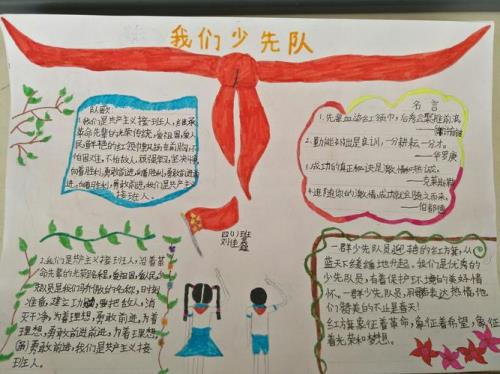 我们少先队
队歌:
1.我们是共产主义接班人,继承
革命先辈的光荣传统,爱祖国,爱人
民,鲜艳的红领巾飘扬在前胸,不
怕困难,不怕敌人,顽强学习,坚决斗争,
向着胜利,勇敢前进,向着胜利,勇敢前进,前
进,向着胜利,勇敢前进,我们是共产主义
接班人。
名言
1.先辈血染红领巾,
2.勤能补拙是良训,一分耕耘一分才。
——华罗庚
3.成功的真正秘诀是激情和热诚。
——克莱斯勒
4.追随你的激情,成功就会随之而来。
四(1)班
2.我们是共产主义接班人,沿着革
命先辈的光荣路程,爱祖国,爱人民,
少先队员是我们骄傲的名称,时刻
准备,建立功勋,要把敌人,消
灭干净,为着理想,勇敢前进,为着
理想,勇敢前进,前进,为着理想,
勇敢前进,我们是共产主义接
班人。
一群少先队员迎着艳的红方巾,从
蓝天下缓缓地升起。我们是优秀的
少先队员,有着保护环境的美好情
怀。一群少先队员,用表达热情,他
们赞美的不止是春天!
红方巾象征着革命,象征着希望,象征
着光荣和梦想。